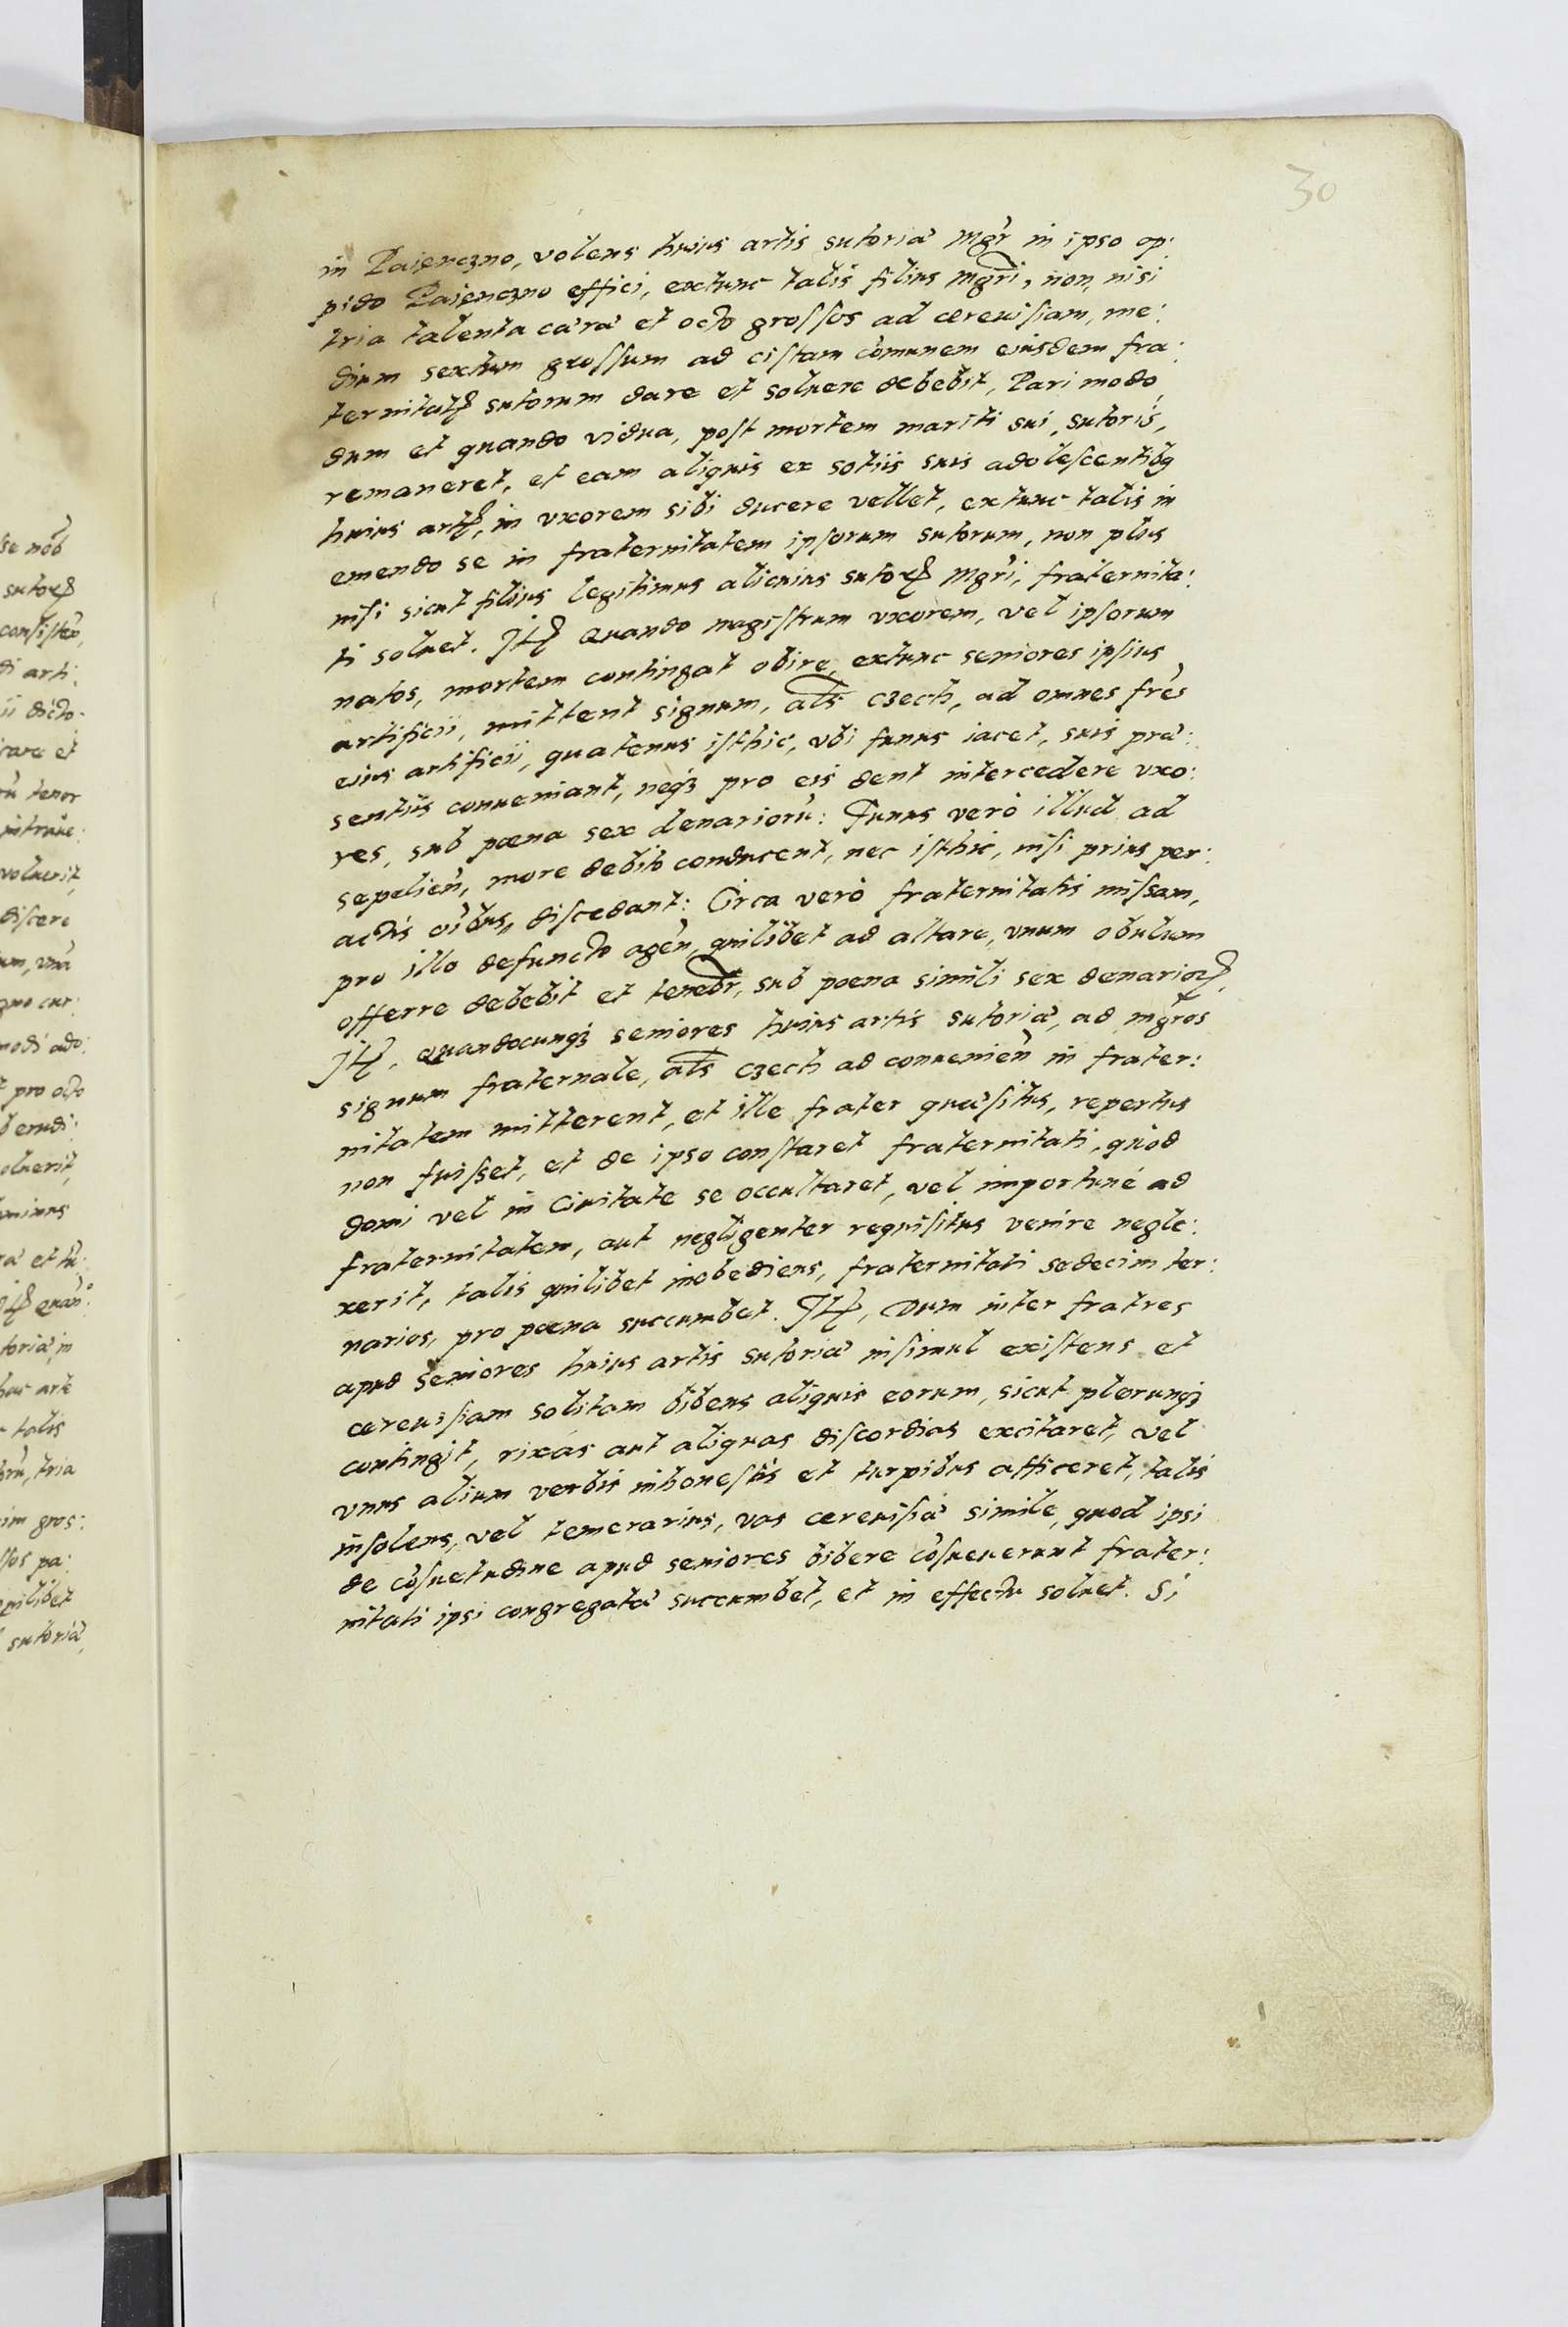 30
in Paięnczno, volens huius artis sutoriæ Mgr̃ in ipso op:
pido Paięnczno effici, extunc talis filius Mgr̃i, non, nisi
tria talenta cæræ et octo grossos ad cereuisiam, me:
dium sextum grossum ad cistam com̃unem eiusdem fra:
ternitatꝭ sutorum dare et soluere debebit, Pari modo,
dum et quando vidua, post mortem mariti sui, sutoris,
remaneret, et eam aliquis ex sotiis suis adolescentibꝫ
huius artꝭ, in vxorem sibi ducere vellet, extunc talis in
emendo se in fraternitatem ipsorum sutorum, non plus
nisi sicut filius legitimus alicuius sutoꝝ Mgr̃i, fraternita:
ti soluet. Itꝭ Quando magistrum vxorem, vel ipsorum
natos, mortem contingat obire, extunc seniores ipsius
artificii, mittent signum, als̃ czech, ad omnes fr̃es
eius artificii, quatenus isthic, vbi funus iacet, suis præ:
sentiis conueniant, neqꝫ pro eis dent intercedere vxo:
res, sub pœna sex denariorũ: Funus verò illud ad
sepelieñ, more debito conducent, nec isthic, nisi prius per:
actis oĩbus, discedant: Circa verò fraternitatis missam,
pro illo defuncto ageñ, quilibet ad altare, vnum obulum
offerre debebit et tenebr̃, sub poena simili sex denarioꝝ.
Itꝭ, Quandocunqꝫ seniores huius artis sutoriæ, ad mgr̃os
signum fraternale, als̃ czech ad conuenieñ in frater:
nitatem mitterent, et ille frater quæsitus, repertus
non fuisset, et de ipso constaret fraternitati, quòd
domi vel in Ciuitate se occultaret, vel importunè ad
fraternitatem, aut negligenter requisitus venire negle:
xerit, talis quilibet inobediens, fraternitati sedecim ter:
narios, pro pœna succumbet. Itꝭ, Dum inter fratres
apud seniores huius artis sutoriæ insimul existens et
cereuisiam solitam bibens aliquis eorum, sicut plerunqꝫ
contingit, rixas aut aliquas discordias excitaret, vel
vnus alium verbis inhonestis et turpibus afficeret, talis
insolens, vel temerarius, vas cereuisiæ simile, quod ipsi
de cõsuetudine apud seniores bibere cõsueuerunt frater:
nitati ipsi congregatæ succumbet, et in effectu soluet. Si